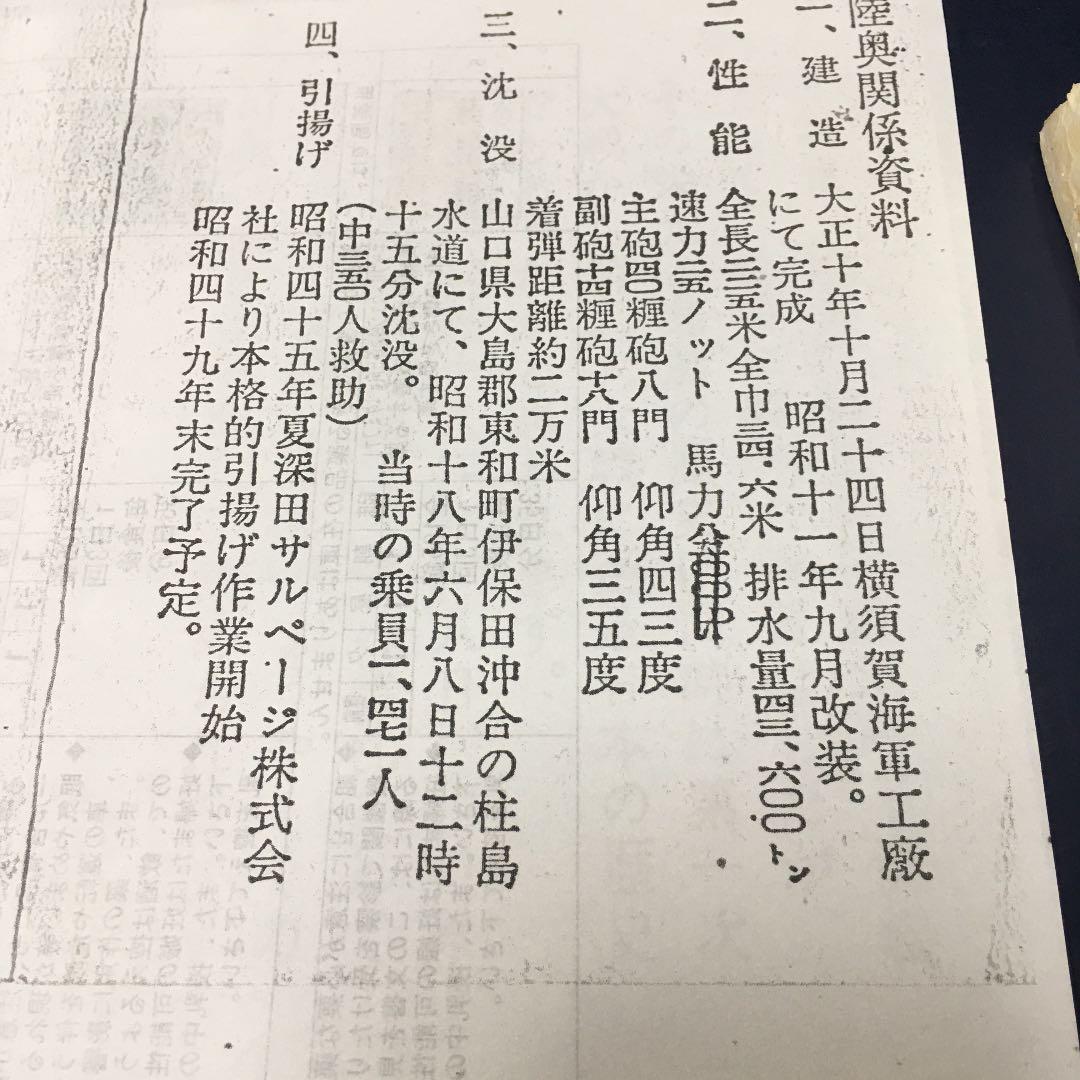 陸奥関係資料
一、建造 大正十年十月二十四日横須賀海軍工廠
にて完成 昭和十一年九月改装。
二、性能 全長二二五米全巾三四.六米 排水量四三、六〇〇トン
速力二五ノット 馬力
主砲四〇糎砲八門 仰角四三度
副砲十四糎砲十八門 仰角三五度
着弾距離約二万米
三、沈没 山口県大島郡東和町伊保田沖合の柱島
水道にて、昭和十八年六月八日十二時
十五分沈没。 当時の乗員一、四七一人
(中三五〇人救助)
四、引揚げ 昭和四十五年夏深田サルベージ株式会
社により本格的引揚げ作業開始
昭和四十九年末完了予定。